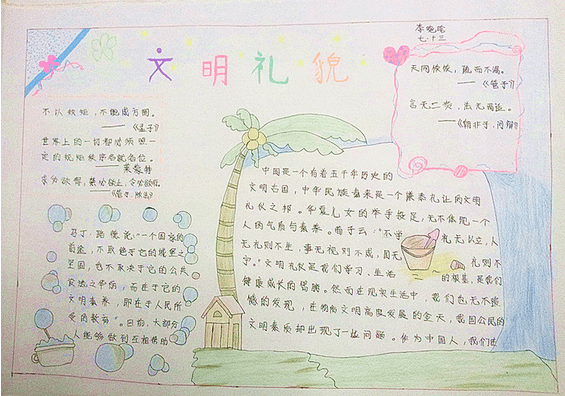 文明礼貌
李晓琬
七.十三
天网恢恢，疏而不漏。
——《老子》
言无二贵，法无两适。
——《韩非子·问辩》
不以规矩，不能成方圆。
——《孟子》
世界上的一切都必须按照一
定的规矩秩序各就各位。
——莱蒙特
求必欲得，禁必欲止，令必欲行。
——《管子·法法》
马丁·路德说："一个国家的
前途，不取决于它的城堡之
坚固，也不取决于它的公共
设施之华丽，而在于它的
文明素养，即在于人民所
受的教育"。日前，大部分
人能够做到互相帮助
中国是一个有着五千年历史的
文明古国，中华民族素来是一个谦恭礼让的文明
礼仪之邦。华夏儿女的举手投足，无不体现一个
人的气质与素养。荀子云："不学礼无以立，人
无礼则不生，事无礼则不成，国无礼则不
宁。"文明礼仪是我们学习、生活的根基，是我们
健康成长的臂膀。然而在现实生活中，我们也无不遗
憾的发现，在物质文明高度发展的今天，我国公民的
文明素质却出现了一些问题。作为中国人，我们这